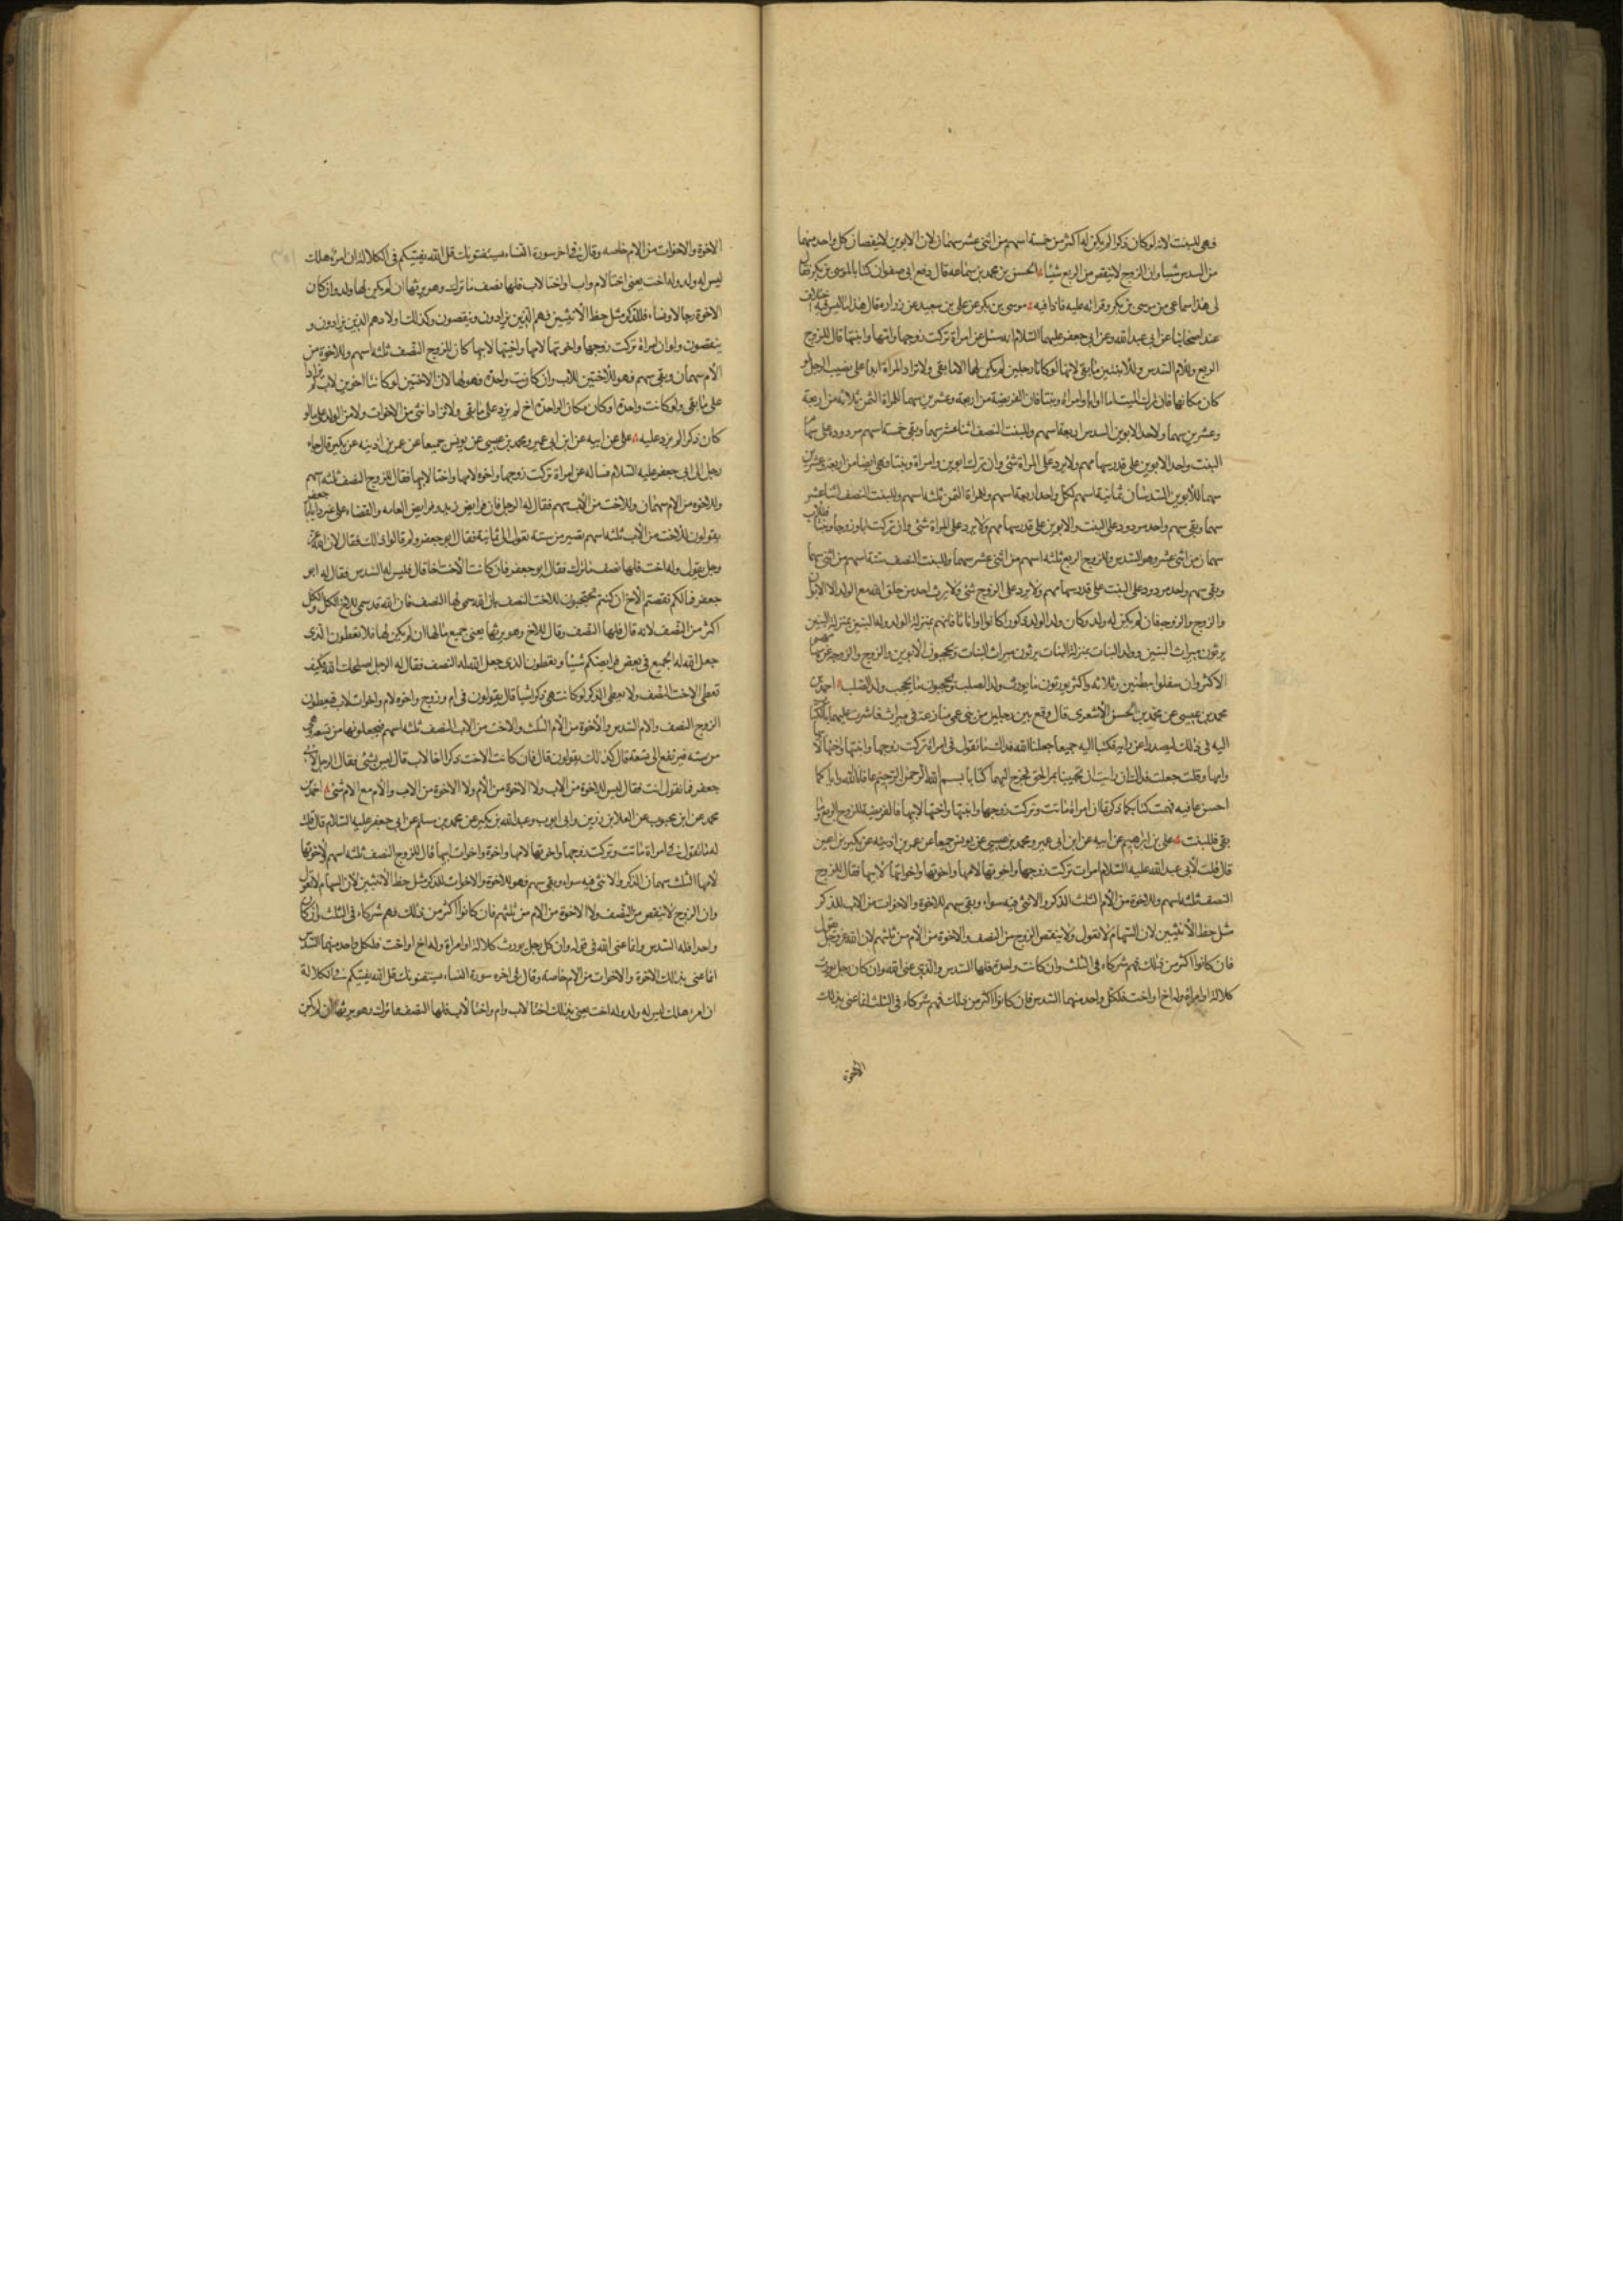 فهى للبنت لانه لو كان ذكرا لم يكن له اكثر من خمسة اسهم من اثنى عشر سهما لان الابوين لا ينقصان كل واحد منهما
من السدس شيئا وان الزوج لا ينقص من الربع شيئا الحسن بن محمد بن سماعه قال دفع الى صفوان كتابا لموسى بن بكر فقال
لى هذا سماعى من موسى بن بكر وقراته عليه فاذا فيه موسى بن بكر عن على بن سعيد عن زراره قال هذا مما ليس فيه اختلاف
عند اصحابنا عن ابى عبد الله وعن ابى جعفر عليهما السلام انه سئل عن امراة تركت زوجها وامها وابنتها قال للزوج
الربع وللام السدس وللابنتين ما بقى لانهما لو كانا رجلين لم يكن لهما الا ما بقى ولا تزاد المراة ابدا على نصيب الرجل لو
كان مكانها فان ترك الميت اما او ابا وامراة وبنتا فان الفريضة من اربعة وعشرين سهما للمراة الثمن ثلاثة من اربعة
وعشرين سهما ولاحد الابوين السدس اربعة اسهم وللبنت النصف اثنا عشر سهما وبقى خمسة اسهم مردودة على سهام
البنت واحد الابوين على قدر سهامهم ولا يرد على المراة شئ وان ترك ابوين وامراة وبنتا فهى ايضا من اربعة وعشرين
سهما للابوين السدسان ثمانية اسهم لكل واحد اربعة اسهم وللمراة الثمن ثلثة اسهم وللبنت النصف اثنا عشر
سهما وبقى سهم واحد مردود على البنت والابوين على قدر سهامهم ولا يرد على المراة شئ وان تركت ابا وزوجا وبنتا فللاب
سهمان من اثنى عشر وهو السدس وللزوج الربع ثلثه اسهم من اثنى عشر سهما وللبنت النصف ستة اسهم من اثنى عشر سهما
وبقى سهم واحد مردود على البنت على قدر سهامهم ولا يرد على الزوج شئ ولا يرث احد من خلق الله مع الولد الا الابوان
والزوج والزوجة فان لم يكن له ولد وكان ولد الولد ذكورا كانوا او اناثا فانهم بمنزلة الولد ولد البنين بمنزلة البنين
يرثون ميراث البنين وولد البنات بمنزلة البنات يرثون ميراث البنات ويحجبون الابوين والزوج والزوجة عن سهامهم
الاكثر وان سفلوا ببطنين وثلاثه واكثر يورثون ما يورث ولد الصلب ويحجبون ما يحجب ولد الصلب احمد بن
محمد بن عيسى عن محمد بن الحسن الاشعرى قال وقع بين رجلين من بنى عمى منازعة فى ميراث فاشرت عليهما بالكتاب
اليه فى ذلك ليصدرا عن رايه فكتبا اليه جميعا جعلنا الله فداك ما تقول فى امراة تركت زوجها وابنتها واختها لابيها
وامها وقلت جعلت فداك ان رايت ان تجيبنا بمر الحق فخرج اليهما كتابا بسم الله الرحمن الرحيم عافانا الله واياكما
احسن عافيه فهمت كتابكما ذكرتما ان امراة ماتت وتركت زوجها وابنتها واختها لابيها وامها فالفريضة للزوج الربع وما
بقى فللبنت على بن ابرهيم عن ابيه عن ابن ابى عمير ومحمد بن عيسى عن يونس جميعا عن عمر بن اذينه عن بكير بن اعين
قال قلت لابى عبد الله عليه السلام امراة تركت زوجها واخوتها لامها واخوتها واخواتها لابيها فقال للزوج
النصف ثلثه اسهم وللاخوة من الام الثلث الذكر والانثى فيه سواء وبقى سهم للاخوة والاخوات من الاب للذكر
مثل حظ الانثيين لان السهام لا تعول ولا ينقص الزوج من النصف والاخوة من الام من ثلثهم لان الله عز وجل يقول
فان كانوا اكثر من ذلك فهم شركاء فى الثلث وان كانت واحدة فلها السدس والذى عنى الله وان كان رجل يورث
كلالة او امراة وله اخ او اخت فلكل واحد منهما السدس فان كانوا اكثر من ذلك فهم شركاء فى الثلث انما عنى بذلك
الاخوة
الاخوة والاخوات من الام خاصه وقال فى اخر سورة النساء يستفتونك قل الله يفتيكم فى الكلالة ان امرؤ هلك
ليس له ولد وله اخت يعنى اختا لام واب او اختا لاب فلها نصف ما ترك وهو يرثها ان لم يكن لها ولد وان كان
الاخوة رجالا ونساء فللذكر مثل حظ الانثيين فهم الذين يزادون وينقصون وكذلك اولادهم الذين يزادون و
ينقصون ولو ان امراة تركت زوجها واخوتها لامها واختيها لابيها كان للزوج النصف ثلثه اسهم وللاخوة من
الام سهمان وبقى سهم فهو للاختين للاب وان كانت واحدة فهو لها لان الاختين لو كانتا اخوين لاب لم يزادا
على ما بقى ولو كانت واحدة او كان مكان الواحدة اخ لم يزد على ما بقى ولا تزاد انثى من الاخوات ولا من الولد على ما لو
كان ذكرا لم يزد عليه على عن ابيه عن ابن ابى عمير ومحمد بن عيسى عن يونس جميعا عن عمر بن اذينه عن بكير قال جاء
رجل الى ابى جعفر عليه السلام فساله عن امراة تركت زوجها واخوة لامها واختا لابيها فقال للزوج النصف ثلثه اسهم
وللاخوه من الام سهمان وللاخت من الاب سهم فقال له الرجل فان فرايض زيد وفرايض العامه والقضاء على غير ذا يا ابا جعفر
يقولون للاخت من الاب ثلثه اسهم تصير من ستة تعول الى ثمانية فقال ابو جعفر ولم قالوا ذلك فقال لان الله عز
وجل يقول وله اخت فلها نصف ما ترك فقال ابو جعفر فان كانت الاخت اخا قال فليس له الا السدس فقال له ابو
جعفر فما لكم نقصتم الاخ ان كنتم تحتجون للاخت النصف بان الله سمى لها النصف فان الله قد سمى للاخ الكل والكل
اكثر من النصف لانه قال فلها النصف وقال للاخ وهو يرثها يعنى جميع مالها ان لم يكن لها فلا تعطون الذى
جعل الله له الجميع فى بعض فرايضكم شيئا وتعطون الذى جعل الله له النصف فقال له الرجل اصلحك الله وكيف
تعطى الاخت النصف ولا يعطى الذكر لو كانت هى ذكرا شيئا قال يقولون فى ام وزوج واخوه لام واخوات لاب فيعطون
الزوج النصف والام السدس والاخوة من الام الثلث والاخت من الاب النصف ثلثه اسهم فيجعلونها من تسعة وهى
من سته فيرتفع الى تسعة قال كذلك يقولون قال فان كانت الاخت ذكرا اخا لاب قال ليس شئ فقال الرجل لابى
جعفر فما تقول انت فقال ليس للاخوة من الاب ولا الاخوة من الام ولا الاخوة من الاب والام مع الام شئ احمد بن
محمد عن ابن محبوب عن العلا بن رزين وابى ايوب وعبد الله بن بكير عن محمد بن مسلم عن ابى جعفر عليه السلام قال قلت
له ما تقول فى امراة ماتت وتركت زوجها واخوتها لامها واخوة واخوات لابيها قال للزوج النصف ثلثه اسهم ولاخوتها
لامها الثلث سهمان الذكر والانثى فيه سواء وبقى سهم فهو للاخوة والاخوات للذكر مثل حظ الانثيين لان السهام لا تعول
وان الزوج لا ينقص من النصف ولا الاخوة من الام من ثلثهم فان كانوا اكثر من ذلك فهم شركاء فى الثلث وان كان
واحدا فله السدس وانما عنى الله فى قوله وان كان رجل يورث كلالة او امراة وله اخ او اخت فلكل واحد منهما السدس
انما عنى بذلك الاخوة والاخوات من الام خاصة وقال فى اخره سورة النساء يستفتونك قل الله يفتيكم فى الكلالة
ان امرء هلك ليس له ولد وله اخت يعنى بذلك اختا لاب وام واختا لاب فلها النصف مما ترك وهو يرثها ان لم يكن